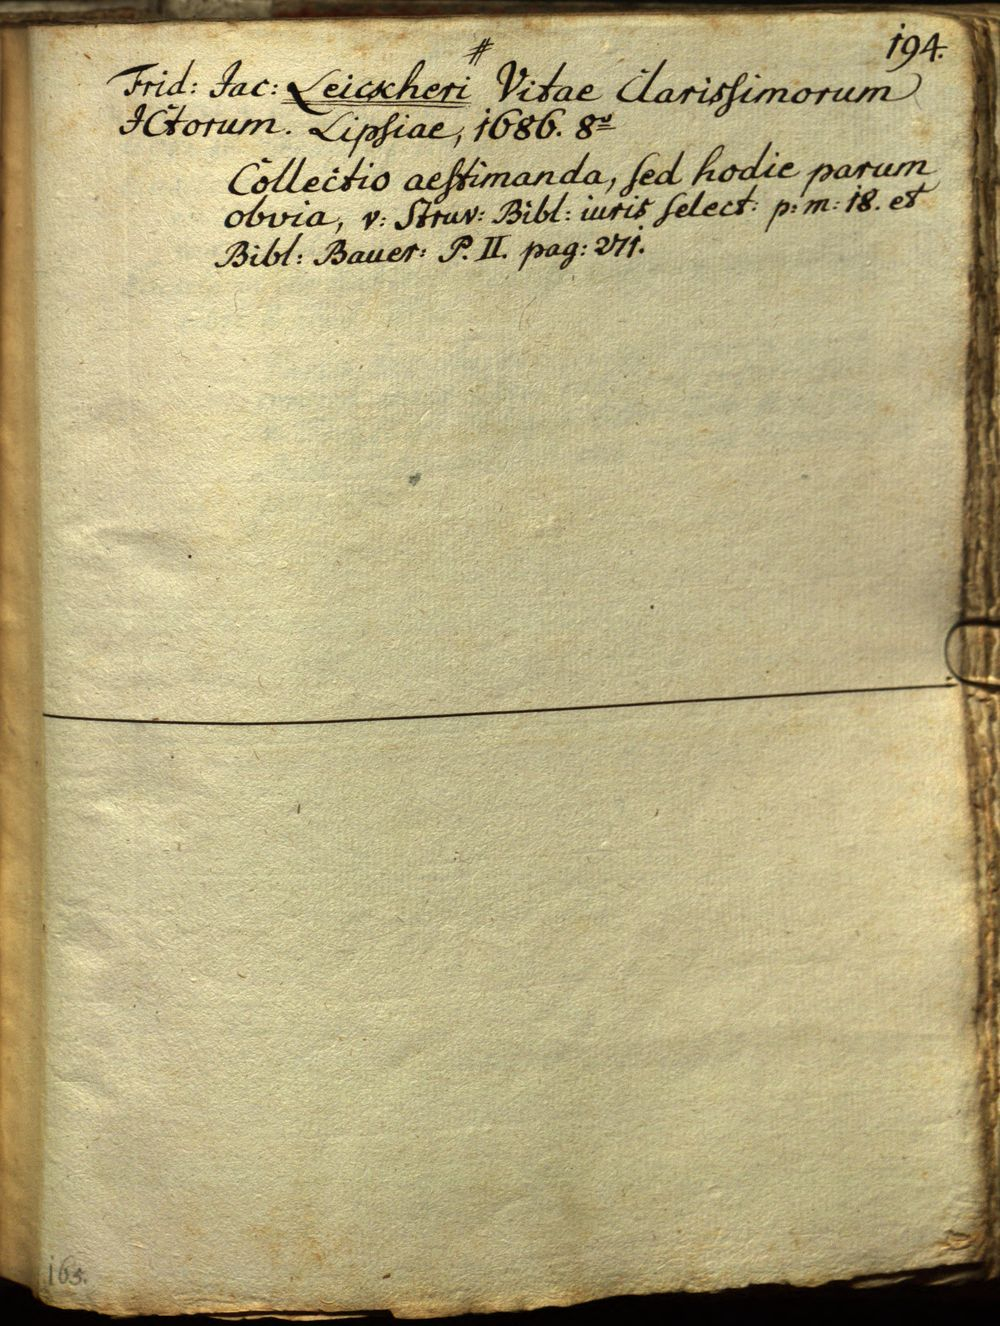 194.
#
Frid: Iac: Leickheri Vitae Clarissimorum
ICtorum. Lipsiae, 1686. 8º
Collectio aestimanda, sed hodie parum
obvia, v: Struv: Bibl: iuris select: p: m: 18. et
Bibl: Bauer: P. II. pag: 271.
165.